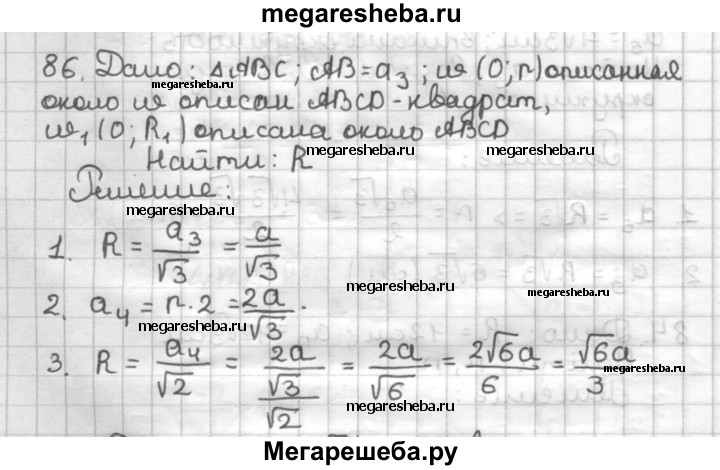 megaresheba.ru
86. Дано: △ABC; AB = a₃; ω (O; r) описанная
megaresheba.ru
около ω описан ABCD - квадрат,
ω₁ (O; R₁) описана около ABCD
megaresheba.ru
Найти: R
megaresheba.ru
Решение:
megaresheba.ru
1. R = a₃/√3 = a/√3
megaresheba.ru
megaresheba.ru
2. a₄ = r · 2 = 2a/√3.
megaresheba.ru
3. R = a₄/√2 = (2a/√3)/√2 = 2a/√6 = 2√6a/6 = √6a/3
megaresheba.ru
megaresheba.ru
Мегарешеба.ру